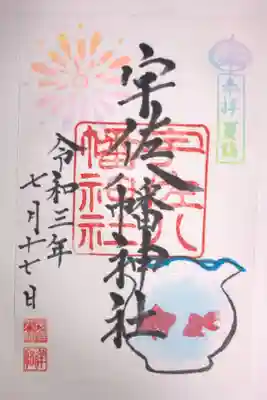 奉拝
宇佐八幡神社
宇佐八
幡神社
令和三年
七月十七日